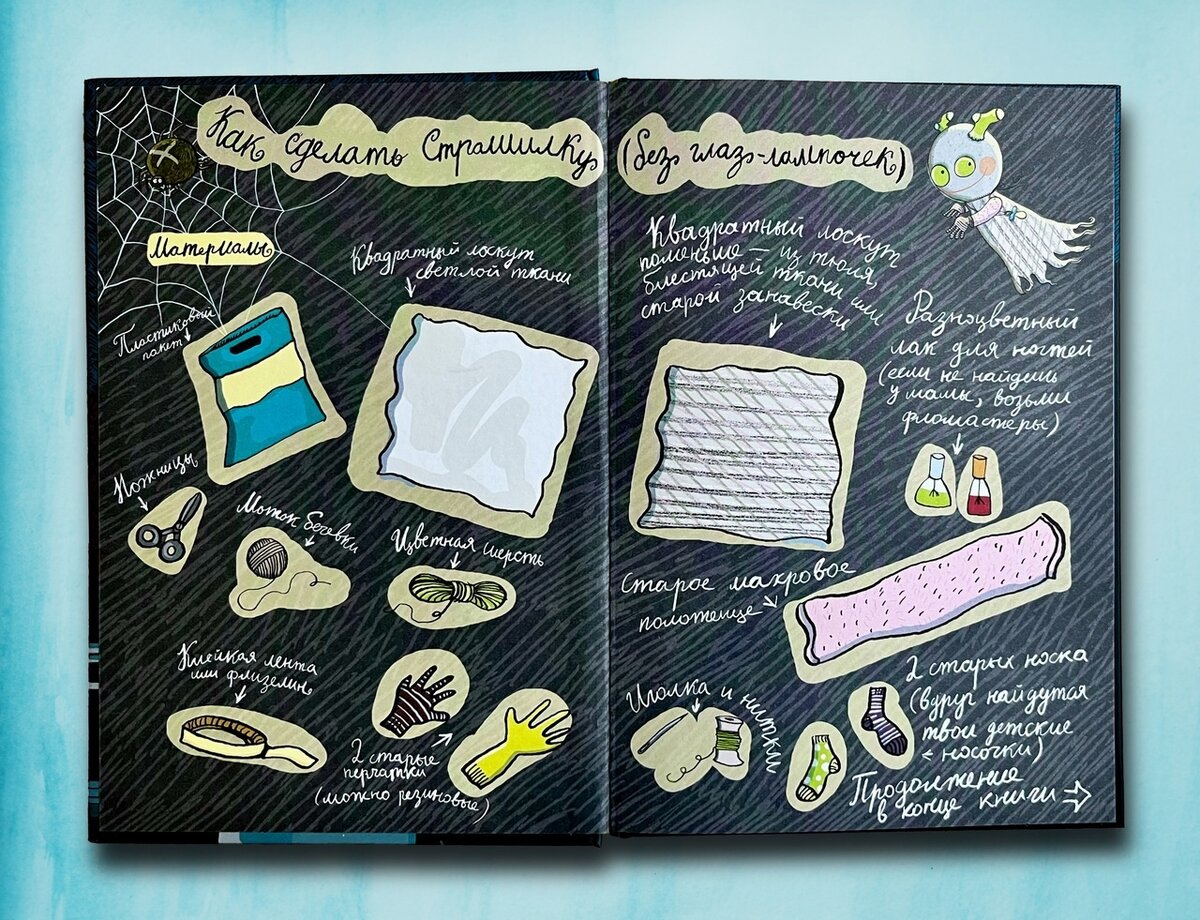 Как сделать Страшилку
(без глаз-лампочек)
Материалы
Пластиковый
пакет
Квадратный лоскут
светлой ткани
Ножницы
Моток бечевки
Цветная шерсть
Клейкая лента
или флизелин
2 старые
перчатки
(можно резиновые)
Квадратный лоскут
поменьше — из тюля,
блестящей ткани или
старой занавески
Разноцветный
лак для ногтей
(если не найдешь
у мамы, возьми
фломастеры)
Старое махровое
полотенце
Иголка и нитки
2 старых носка
(вдруг найдутся
твои детские
носочки)
Продолжение
в конце книги